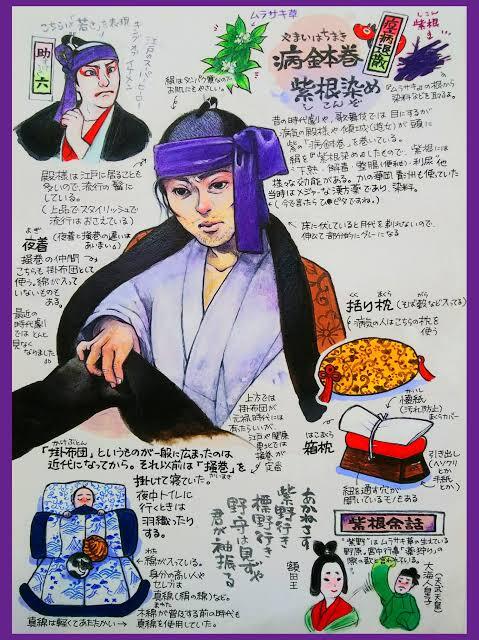 こちらは「若さ」を表現
江戸のスーパーヒーロー
助六
ムラサキ草
やまいはちまき
病鉢巻
紫根染め
しこんぞ
病退散
しこん
紫根
『ムラサキ』の根から
染料などを取るよ。
絹はタンパク質なので
お肌にもやさしい。
昔の時代劇や、歌舞伎では目にするが
病気の殿様や傾城(遊女)が頭に
紫の「病鉢巻」を巻いている。
絹を紫根染めしたもので、紫根には
下熱・解毒・整腸(便秘)・利尿他
様々な効能がある。かの華岡青洲も使っていた
当時はメジャーな漢方薬であり、染料。
殿様は江戸に居ることも
多いので、流行の髷に
している。
(上品でスタイリッシュで
流行はおさえている)
床に伏していると月代を剃れないので、
伸びて部分的にグレーになる
よぎ
夜着
(夜着と掻巻の違いは
あいまい。)
掻巻の仲間
こちらも掛布団として
使う。綿が入って
いないものも
ある。
最近の
時代劇
ではとんと
見なく
なりました
くくり まくら
括り枕
(そば殻など入ってる)
病気の人はこちらの枕を
使う
かいし
懐紙
(汚れ防止)
まくらカバー
はこまくら
箱枕
引き出し
紐を通す穴が
開いているモノもある
上方では
掛布団が
元禄時代には
あったらしいが、
江戸や関東
では掻巻が
定番
かけぶとん
「掛布団」というものが一般に広まったのは
近代になってから。それ以前は「掻巻」を
かいまき
掛けて寝ていた。
夜中トイレに
行くときは
羽織ったり
する。
わた
綿が入っている。
身分の高い人や
セレブは
真綿(絹の綿)など。
木綿が普及する前の時代も
真綿を使用していた。
真綿は軽くてあたたかい
あかねさす
紫野行き
標野行き
野守は見ずや
君が袖振る
額田王
紫根余話
“紫野”はムラサキ草の生えている
野原。宮中行事「薬狩り」の
際の歌と言われている。
大海人皇子
(天武天皇)